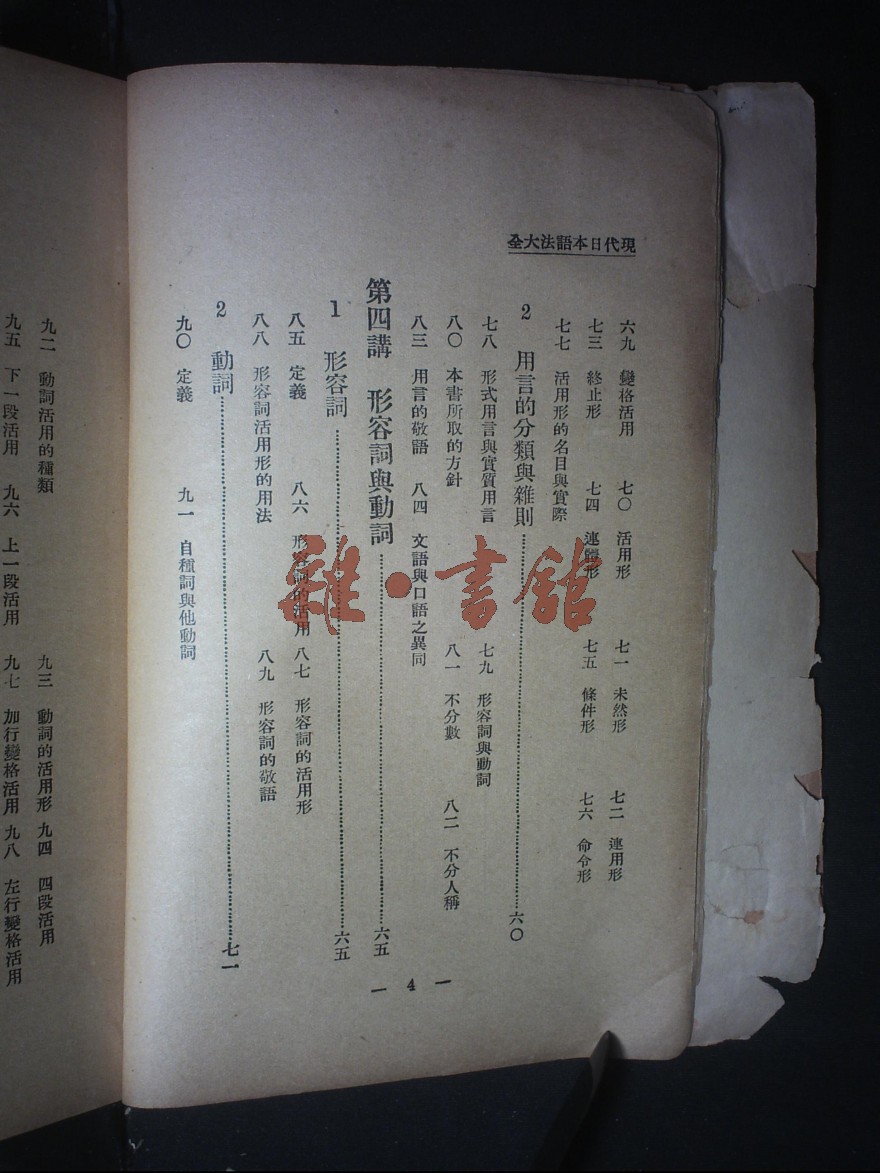 現代日本語法大全
六九 變格活用 七〇 活用形 七一 未然形 七二 連用形
七三 終止形 七四 連體形 七五 條件形 七六 命令形
七七 活用形的名目與實際
2 用言的分類與雜則……六〇
七八 形式用言與實質用言 七九 形容詞與動詞
八〇 本書所取的方針 八一 不分數 八二 不分人稱
八三 用言的敬語 八四 文語與口語之異同
第四講 形容詞與動詞……六五
1 形容詞……六五
八五 定義 八六 形容詞的活用 八七 形容詞的活用形
八八 形容詞活用形的用法 八九 形容詞的敬語
2 動詞……七一
九〇 定義 九一 自種詞與他動詞
— 4 —
九二 動詞活用的種類 九三 動詞的活用形 九四 四段活用
九五 下一段活用 九六 上一段活用 九七 加行變格活用 九八 左行變格活用
雜·書館